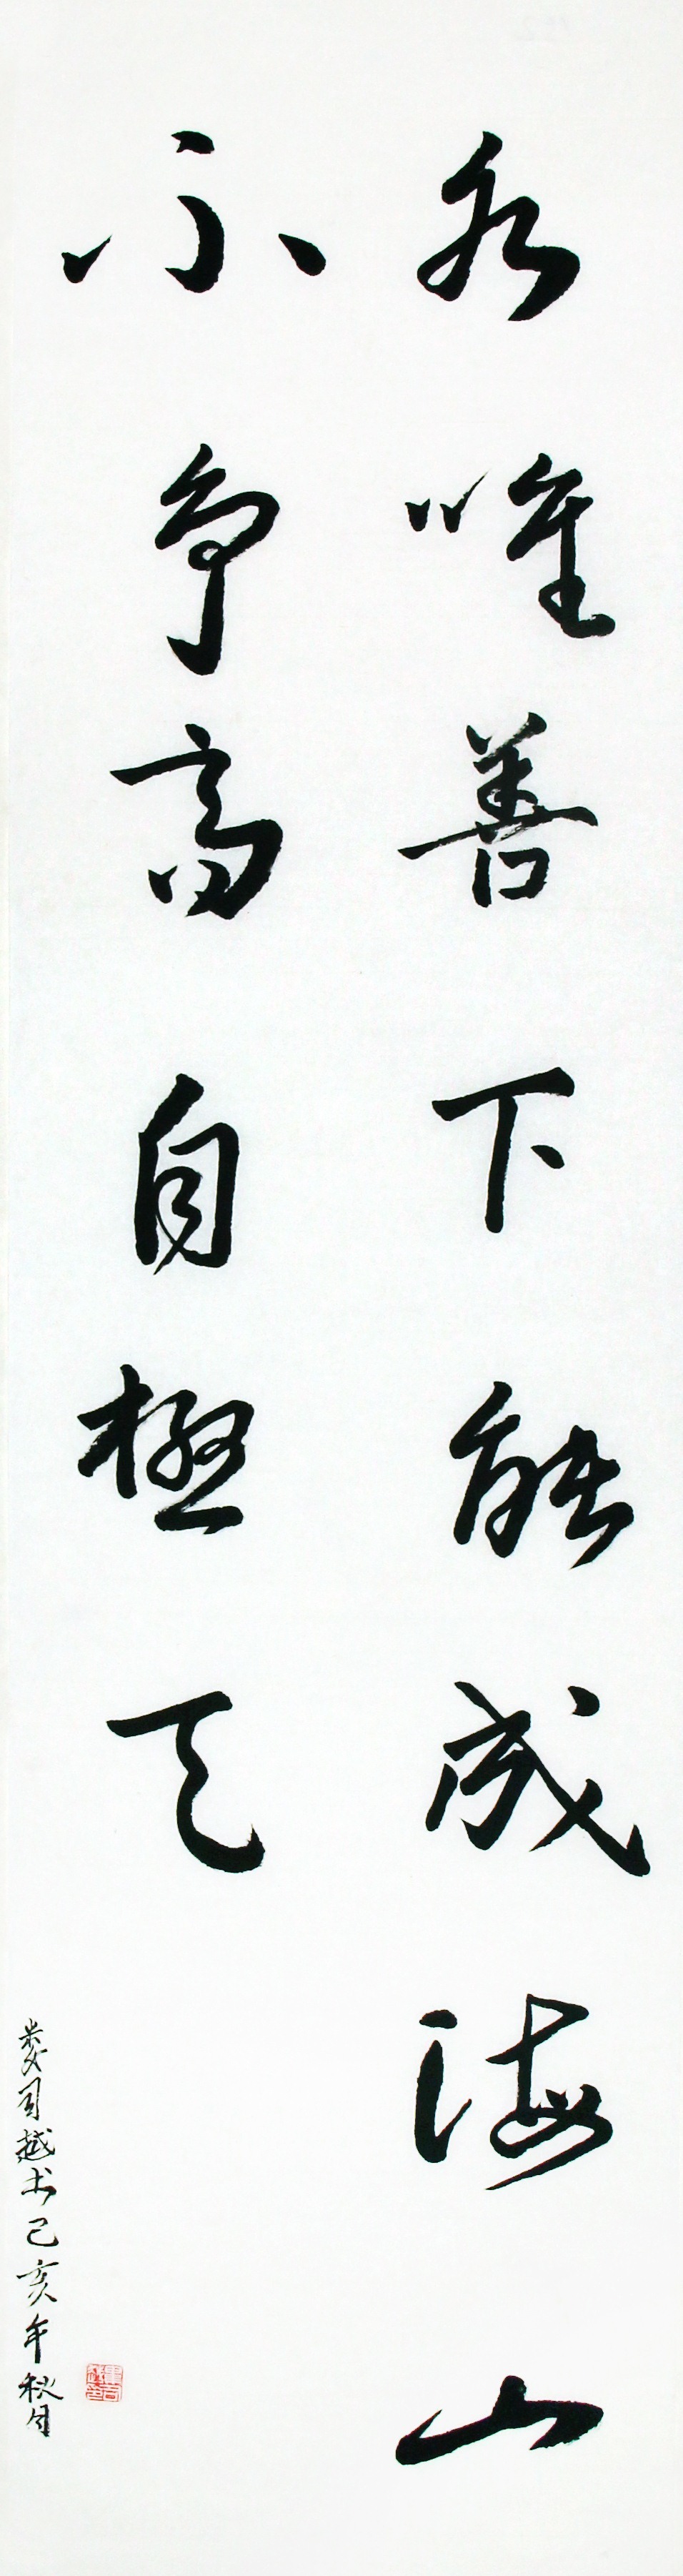 水唯善下能成海山
不争高自极天
娄司越书己亥年秋月